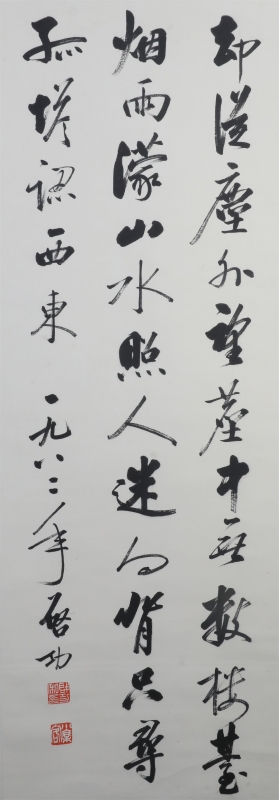 却從塵外望塵中無數樓臺
烟雨濛山水照人迷向背只尋
孤塔認西東 一九八二年 啓功